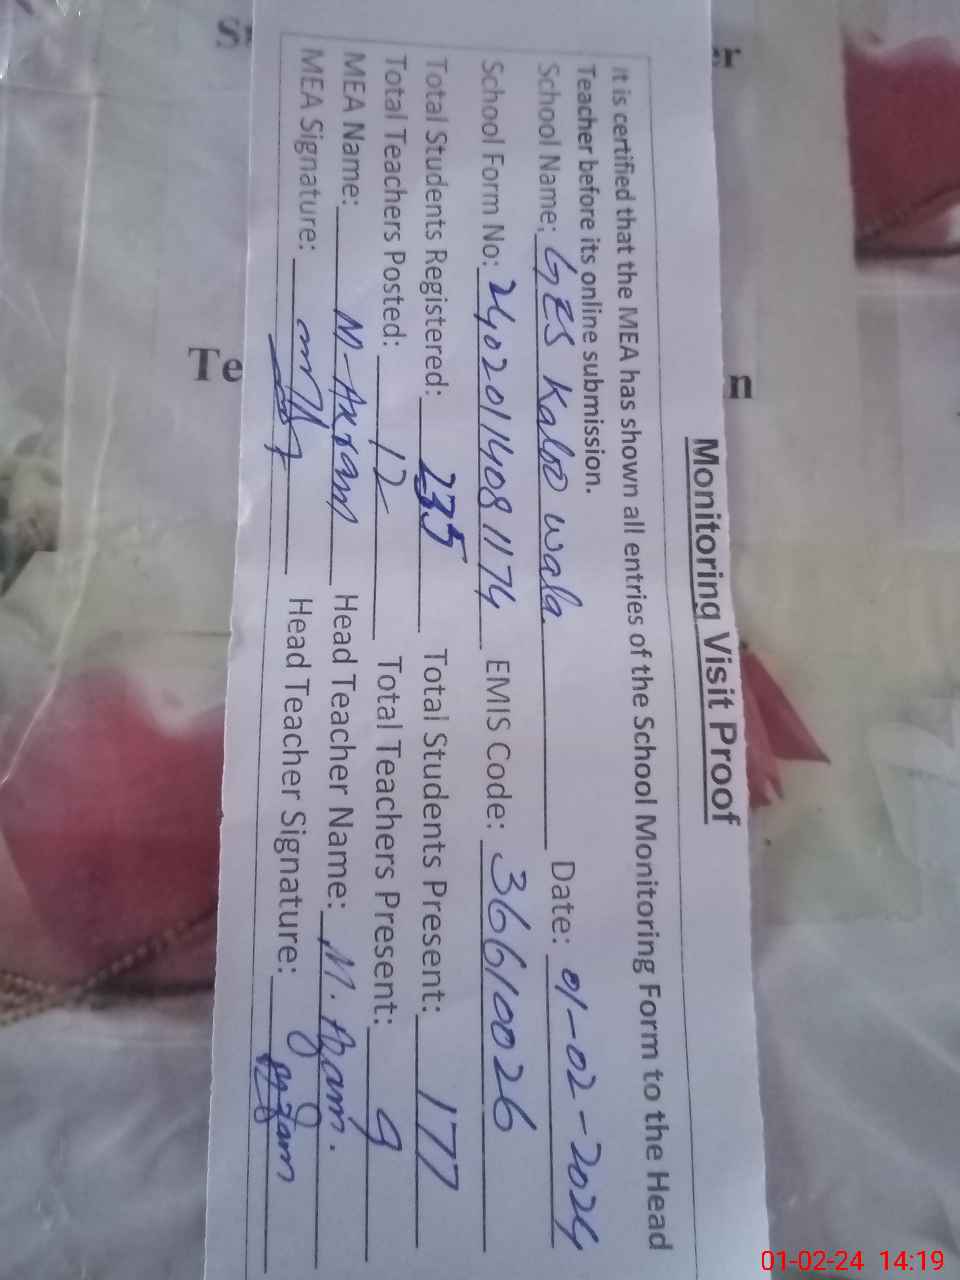 Monitoring Visit Proof
It is certified that the MEA has shown all entries of the School Monitoring Form to the Head
Teacher before its online submission.
School Name: GES Kaloo wala Date: 01-02-2024
School Form No: 2402011408 1174 EMIS Code: 36610026
Total Students Registered: 235 Total Students Present: 177
Total Teachers Posted: 12 Total Teachers Present: 9
MEA Name: M-Akram Head Teacher Name: M. Azam.
MEA Signature: Head Teacher Signature: Azam
Te
n
01-02-24 14:19